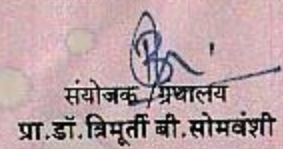 संयोजक ग्रंथालय
प्रा.डॉ.त्रिमूर्ती बी.सोमवंशी